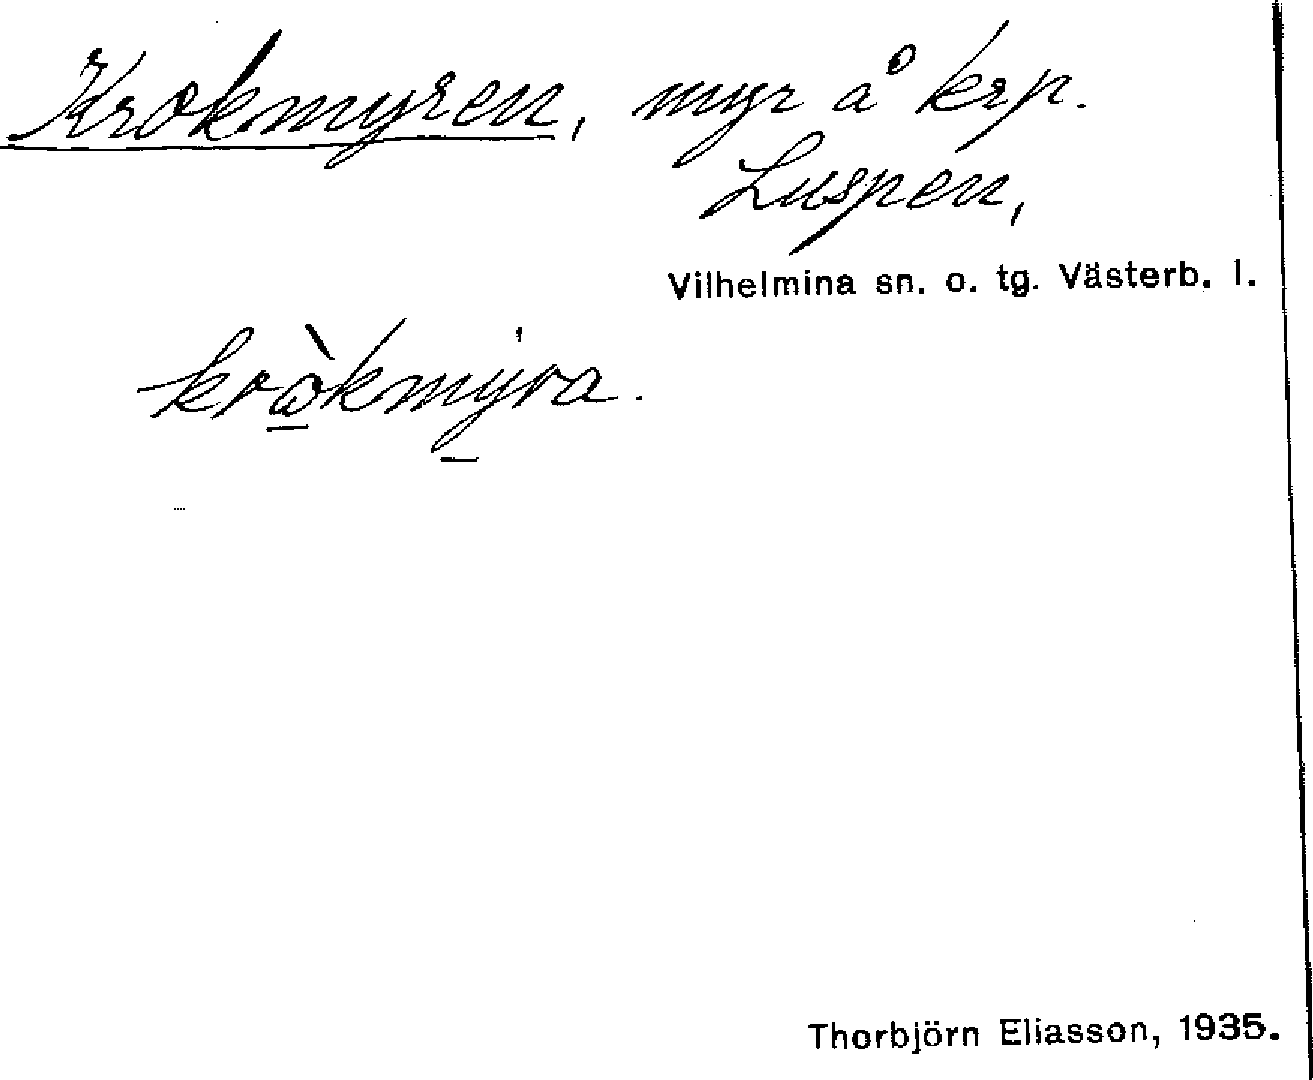 Krokmyren, myr å krp.
Luspen,
Vilhelmina sn. o. tg. Västerb. l.
kròkmyra.
Thorbjörn Eliasson, 1935.